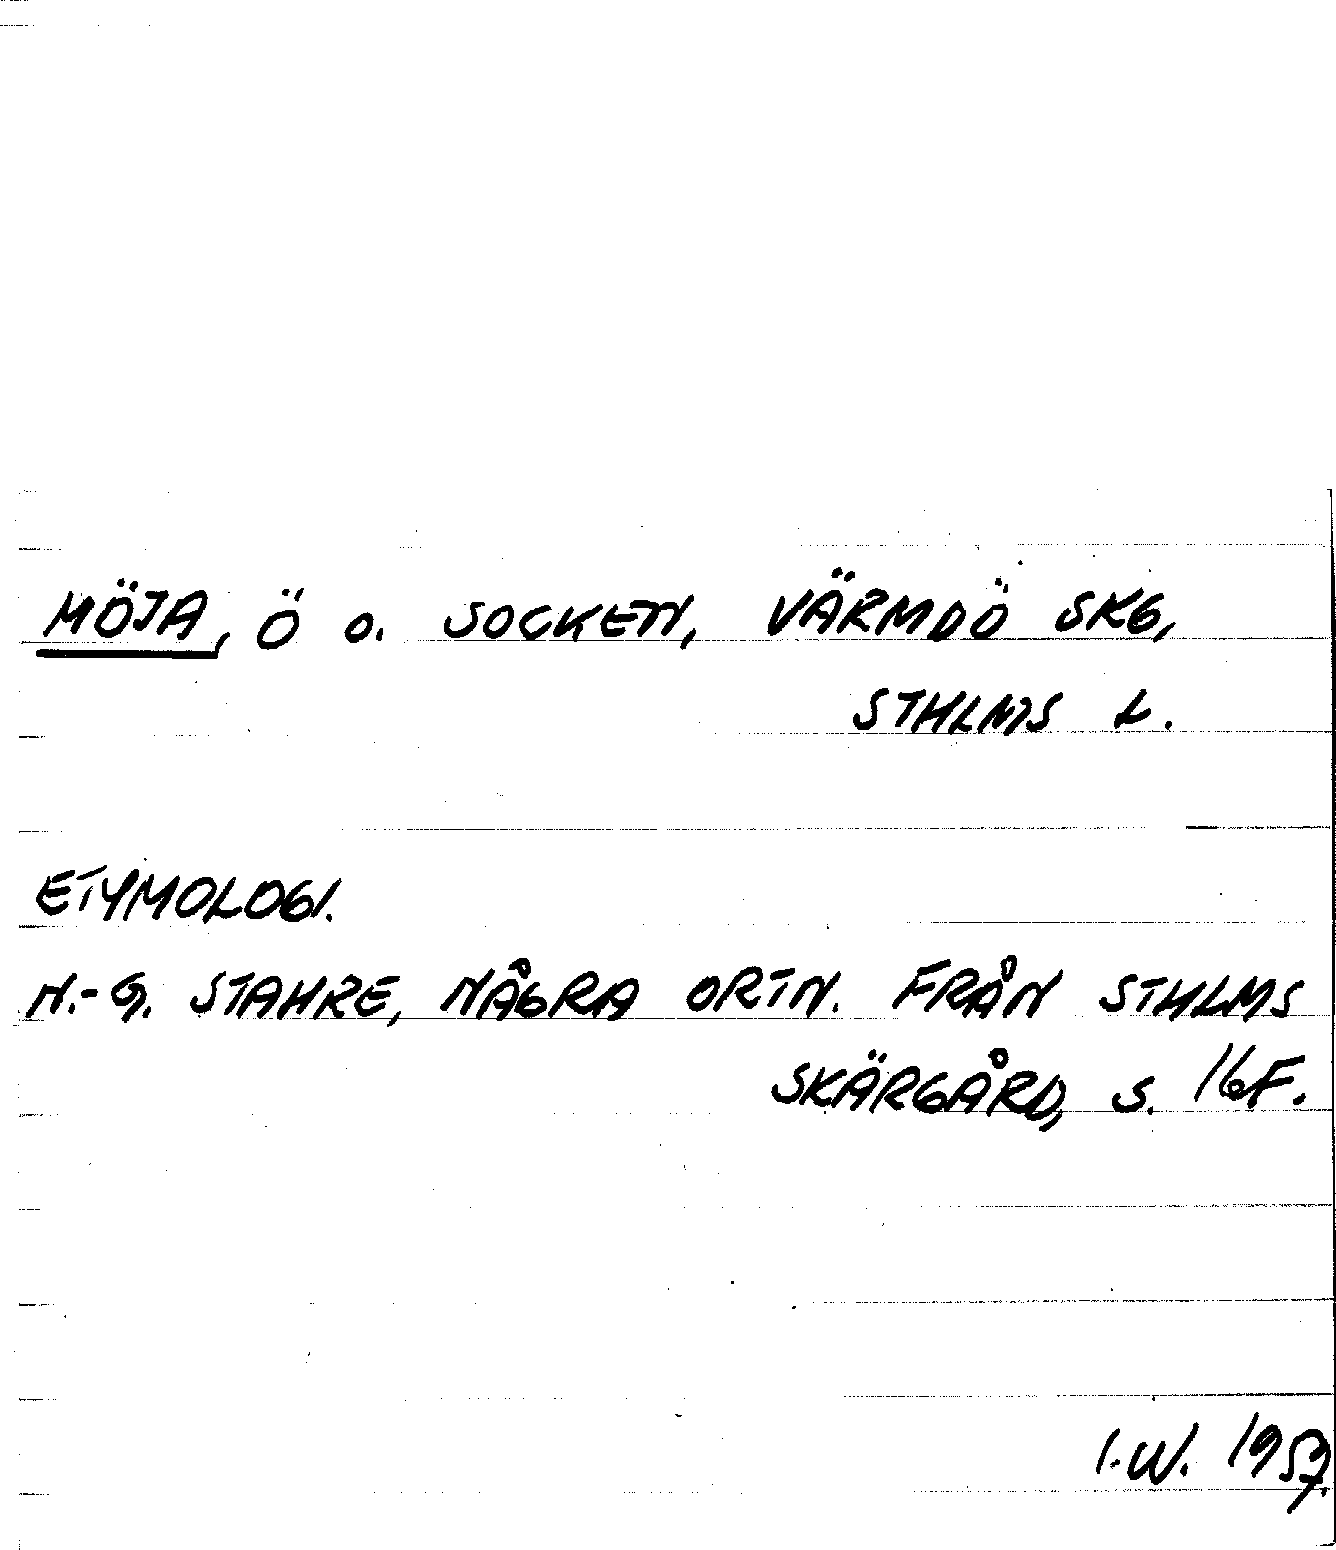 MÖJA, Ö O. SOCKEN, VÄRMDÖ SKG,
STHLMS L.
ETYMOLOGI.
N.-G. STAHRE, NÅGRA ORTN. FRÅN STHLMS
SKÄRGÅRD, S. 16F.
I.W. 1957.